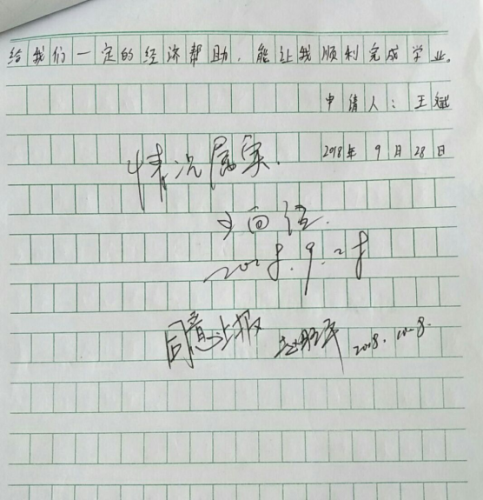 给我们一定的经济帮助，能让我顺利完成学业。
申请人：王斌
2018年9月28日
情况属实.
2018.9.28
同意上报 2018.10.8.